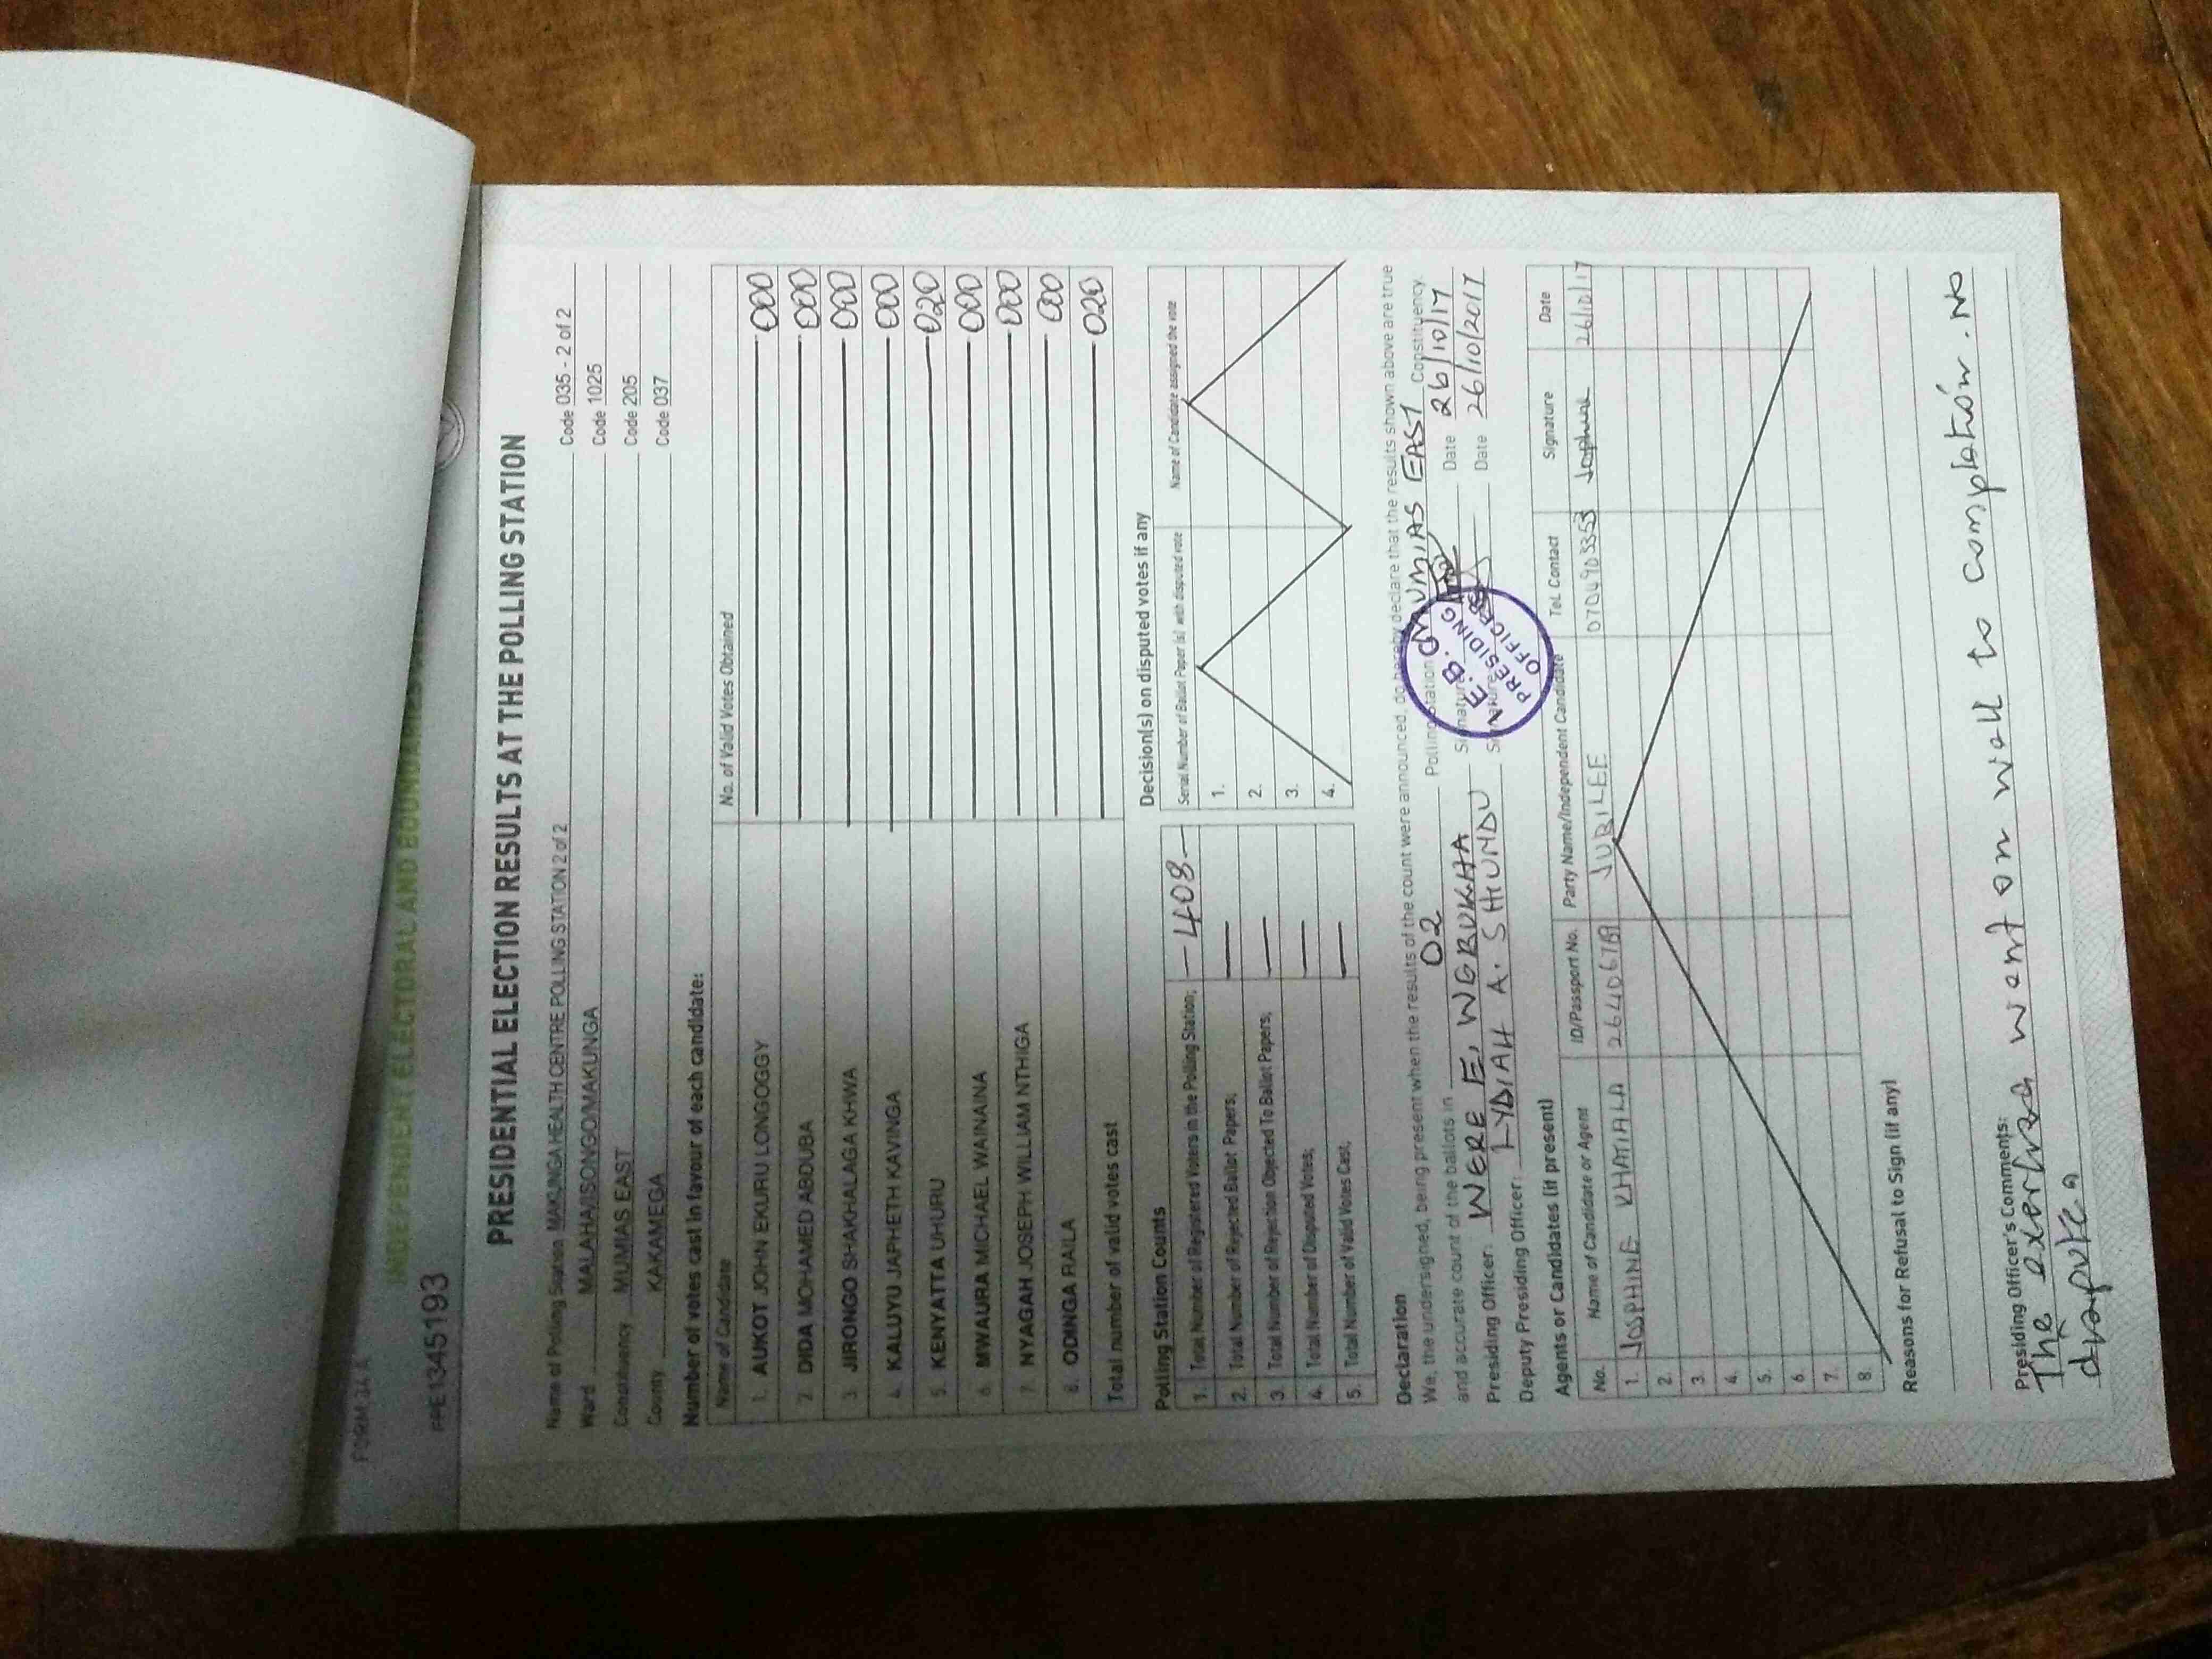 FORM 34A
INDEPENDENT ELECTORAL AND BOUNDARIES
PPE1345193
PRESIDENTIAL ELECTION RESULTS AT THE POLLING STATION
Name of Polling Station MAKUNGA HEALTH CENTRE POLLING STATION 2 of 2 Code 035 - 2 of 2
Ward MALAHA/ISONGO/MAKUNGA Code 1025
Constituency MUMIAS EAST Code 205
County KAKAMEGA Code 037
Number of votes cast in favour of each candidate:
Name of Candidate No. of Valid Votes Obtained
1. AUKOT JOHN EKURU LONGOGGY 000
2. DIDA MOHAMED ABDUBA 000
3. JIRONGO SHAKHALAGA KHWA 000
4. KALUYU JAPHETH KAVINGA 000
5. KENYATTA UHURU 020
6. MWAURA MICHAEL WAINAINA 000
7. NYAGAH JOSEPH WILLIAM NTHIGA 000
8. ODINGA RAILA 000
Total number of valid votes cast 020
Polling Station Counts
1. Total Number of Registered Voters in the Polling Station; - 408 -
2. Total Number of Rejected Ballot Papers; —
3. Total Number of Rejection Objected To Ballot Papers; —
4. Total Number of Disputed Votes; —
5. Total Number of Valid Votes Cast; —
Decision(s) on disputed votes if any
Serial Number of Ballot Paper (s) with disputed vote Name of Candidate assigned the vote
1.
2.
3.
4.
Declaration
We, the undersigned, being present when the results of the count were announced, do hereby declare that the results shown above are true
and accurate count of the ballots in 02 Polling Station MUMIAS EAST Constituency.
Presiding Officer: WERE E. WEBUKHA Signature Date 26/10/17
Deputy Presiding Officer: LYDIAH A. SHUNDU Signature Date 26/10/2017
I.E.B.C
PRESIDING
OFFICER
Agents or Candidates (if present)
No. Name of Candidate or Agent ID/Passport No. Party Name/Independent Candidate Tel. Contact Signature Date
1. JOSPHINE KHATIALA JUBILEE 26/10/17
2.
3.
4.
5.
6.
7.
8.
Reasons for Refusal to Sign (if any)
Presiding Officer's Comments:
The exercise went on well to completion. No
dispute.